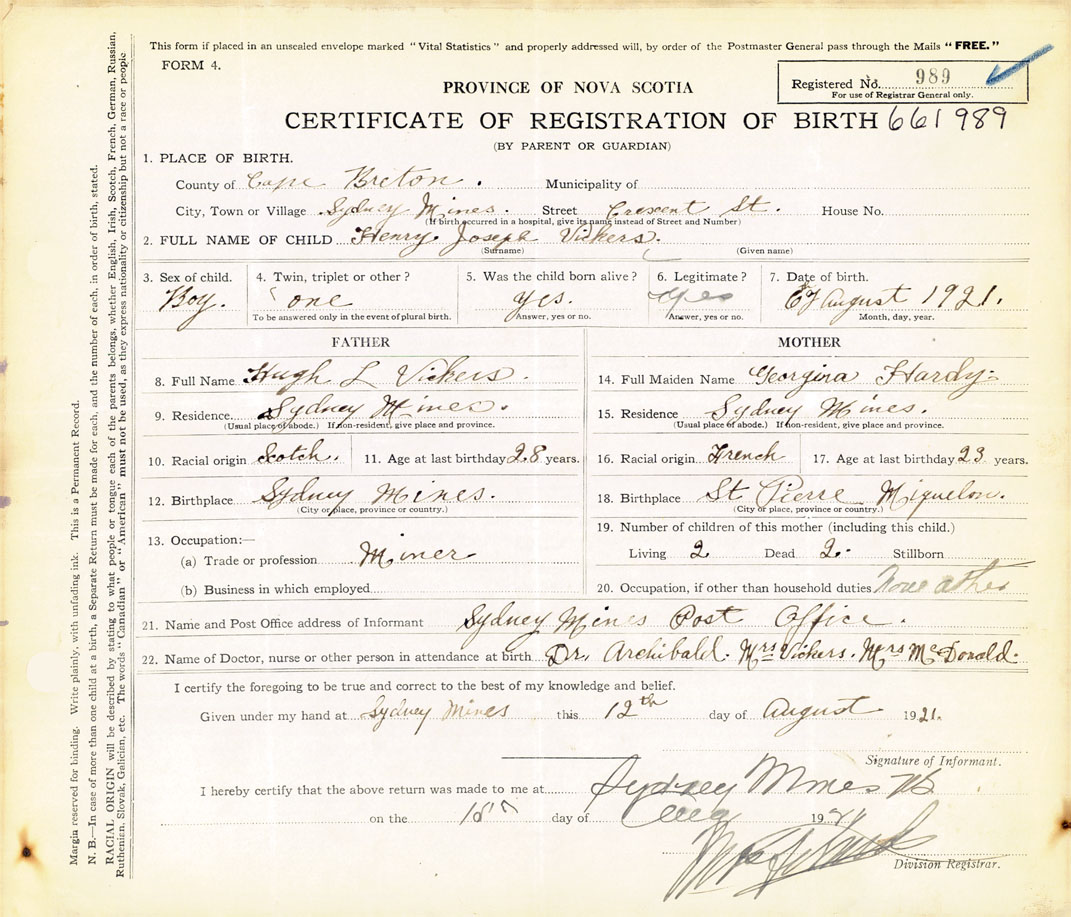 This form if placed in an unsealed envelope marked "Vital Statistics" and properly addressed will, by order of the Postmaster General pass through the Mails "FREE."
FORM 4.
Registered No. 989
For use of Registrar General only.
PROVINCE OF NOVA SCOTIA
CERTIFICATE OF REGISTRATION OF BIRTH 661989
(BY PARENT OR GUARDIAN)
1. PLACE OF BIRTH.
County of Cape Breton. Municipality of
City, Town or Village Sydney Mines. Street Crescent St. House No.
(If birth occurred in a hospital, give its name instead of Street and Number)
2. FULL NAME OF CHILD Henry Joseph Vickers.
(Surname) (Given name)
3. Sex of child. 4. Twin, triplet or other? 5. Was the child born alive? 6. Legitimate? 7. Date of birth.
Boy. one yes. yes August 1921.
To be answered only in the event of plural birth. Answer, yes or no. Answer, yes or no. Month, day, year.
FATHER MOTHER
8. Full Name Hugh L Vickers. 14. Full Maiden Name Georgina Hardy
9. Residence Sydney Mines. 15. Residence Sydney Mines.
(Usual place of abode.) If non-resident, give place and province. (Usual place of abode.) If non-resident, give place and province.
10. Racial origin Scotch. 11. Age at last birthday 28 years. 16. Racial origin French 17. Age at last birthday 23 years.
12. Birthplace Sydney Mines. 18. Birthplace St Pierre Miquelon.
(City or place, province or country.) (City or place, province or country.)
19. Number of children of this mother (including this child.)
13. Occupation:—
(a) Trade or profession Miner Living 2 Dead 2. Stillborn
(b) Business in which employed 20. Occupation, if other than household duties None other
21. Name and Post Office address of Informant Sydney Mines Post Office.
22. Name of Doctor, nurse or other person in attendance at birth Dr. Archibald. Mrs Vickers. Mrs McDonald.
I certify the foregoing to be true and correct to the best of my knowledge and belief.
Given under my hand at Sydney Mines this 12th day of August 1921.
Signature of Informant.
I hereby certify that the above return was made to me at Sydney Mines NS
on the day of Aug 1921
Division Registrar.
Margin reserved for binding. Write plainly, with unfading ink. This is a Permanent Record.
N. B.—In case of more than one child at a birth, a Separate Return must be made for each, and the number of each, in order of birth, stated.
RACIAL ORIGIN will be described by stating to what people or tongue each of the parents belongs, whether English, Irish, Scotch, French, German, Russian,
Ruthenian, Slovak, Galician, etc. The words "Canadian" or "American" must not be used, as they express nationality or citizenship but not a race or people